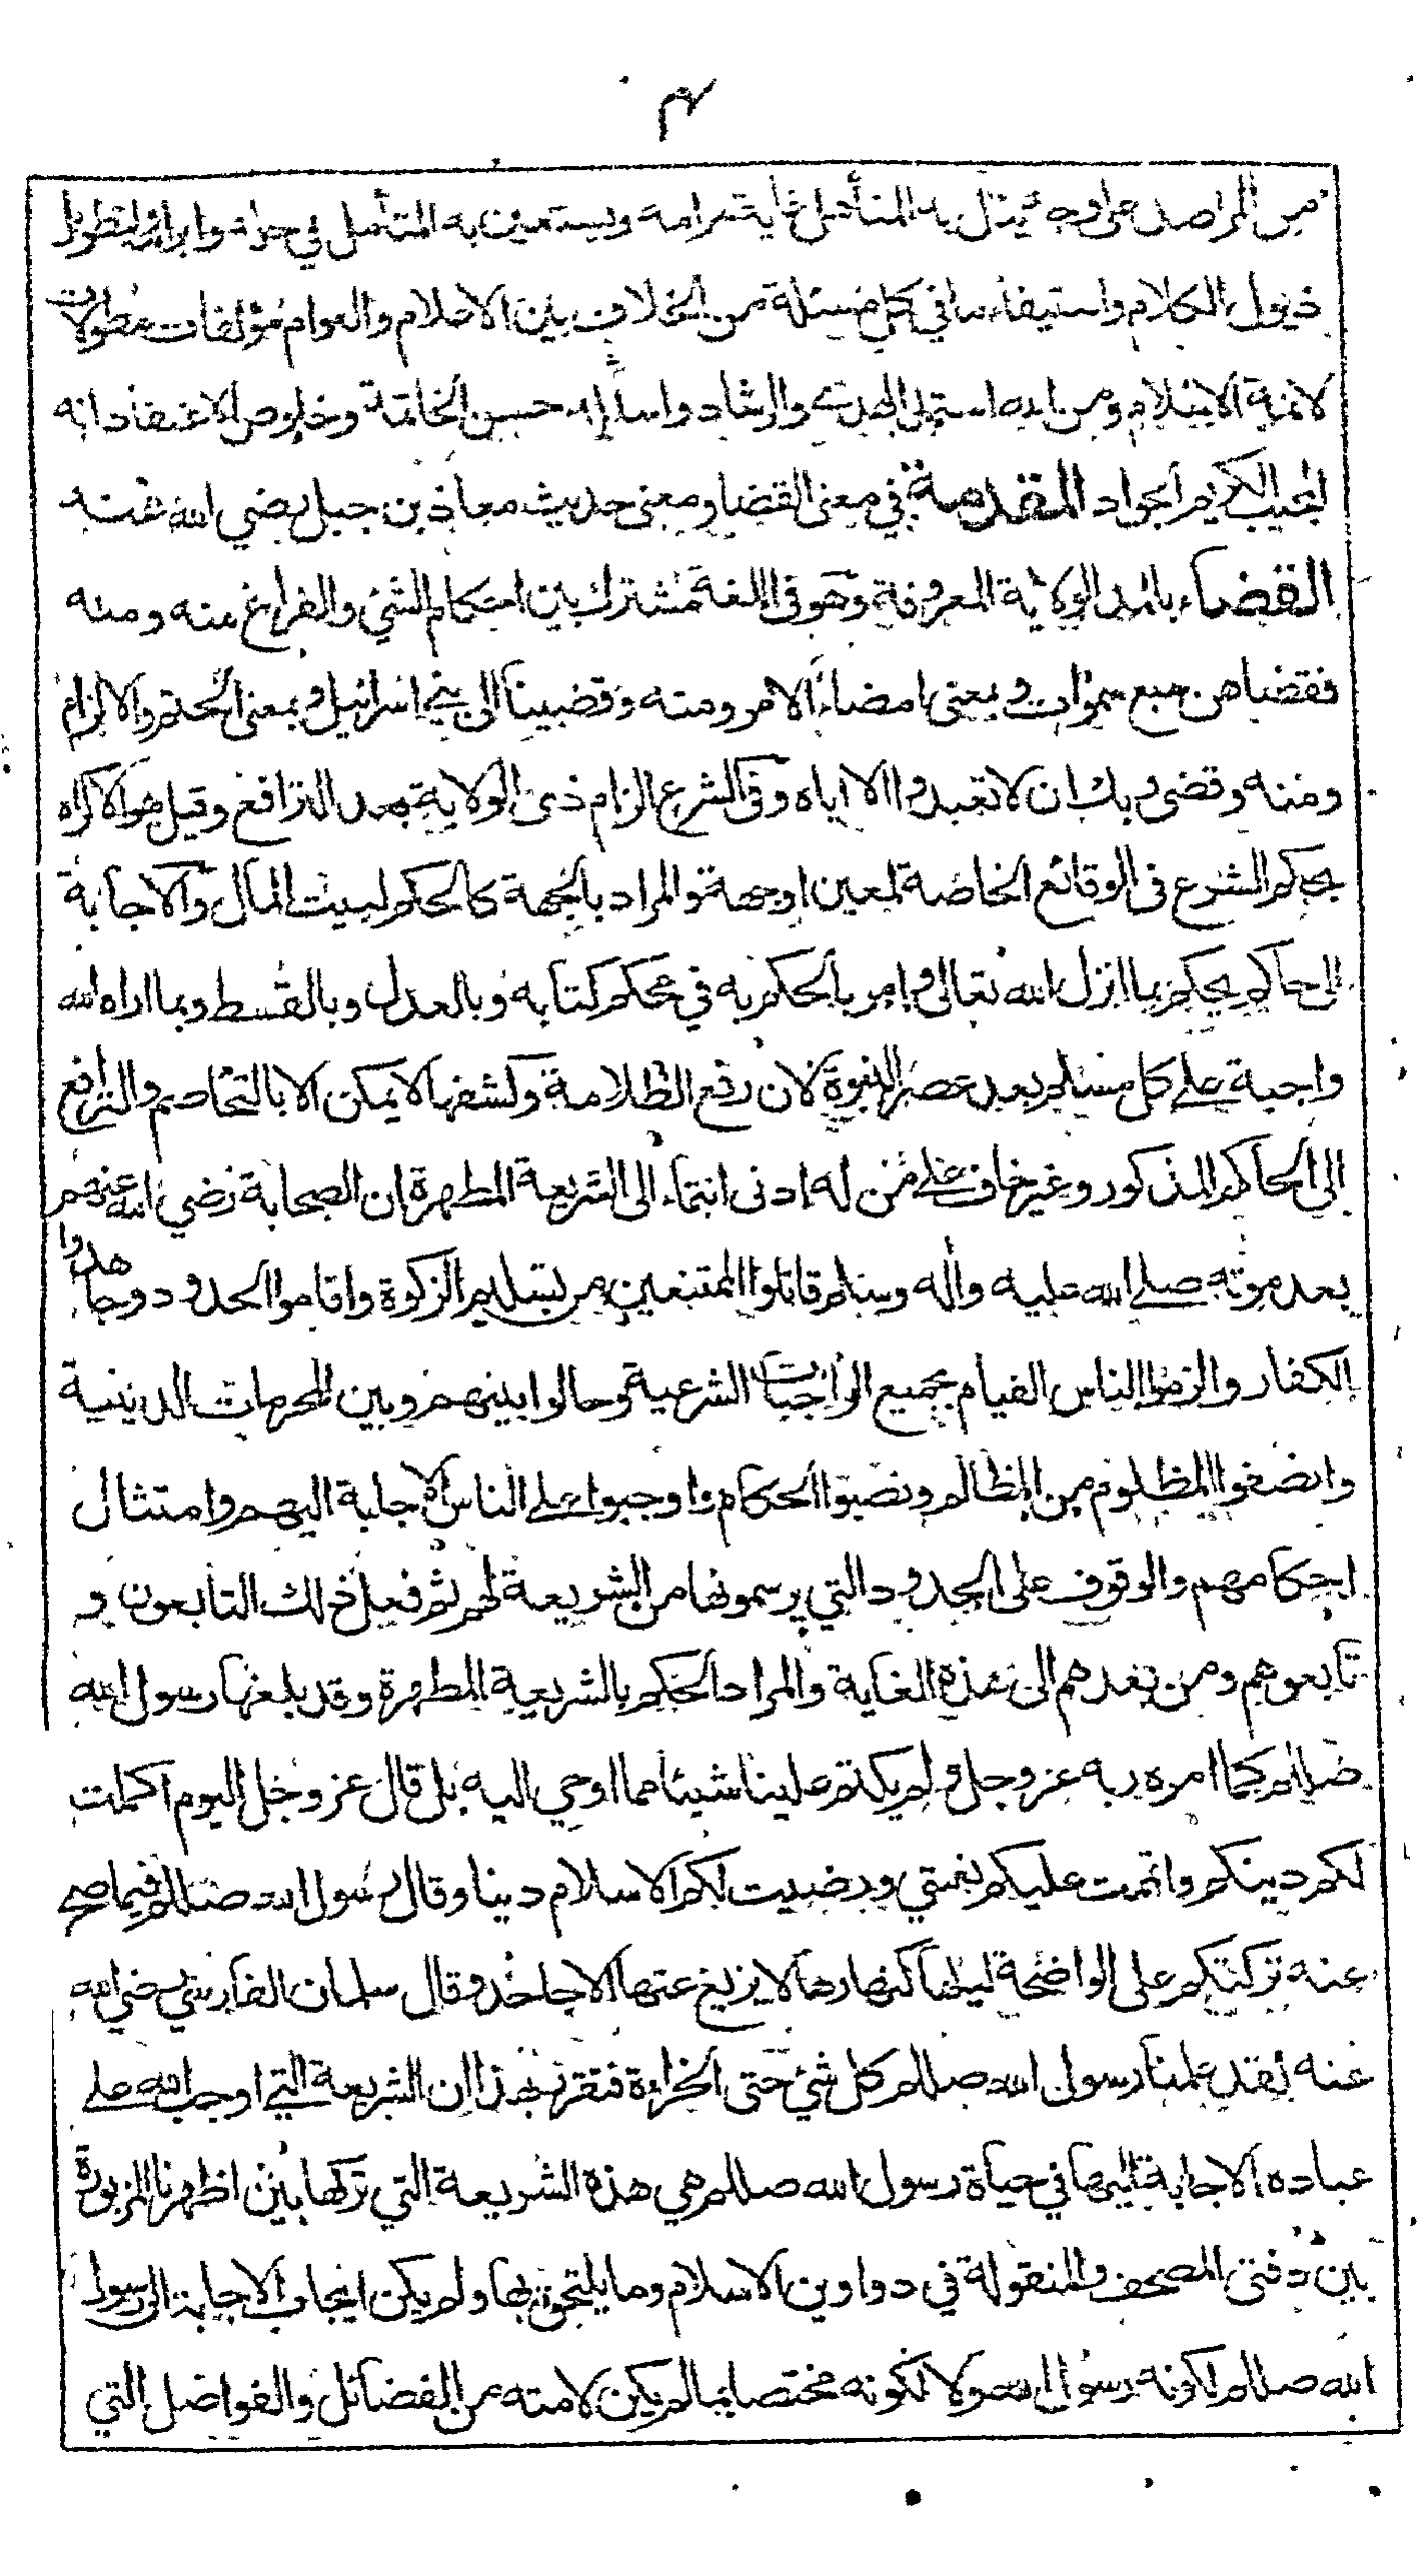 ٤
من المراصد على وجه ينال به المتأهل غاية مرامه ويستعين به المتأمل في حله وابرامه لتطويل
ذيول الكلام واستيفاء ما في كل مسئلة من الخلاف بين الاعلام والعوام مؤلفات مطولات
لائمة الاسلام ومن الله استمد الهدى والرشاد واسأله حسن الخاتمة وخلوص الاعتقاد انه
المجيب الكريم الجواد المقدمة في معنى القضا ومعنى حديث معاذ بن جبل رضي الله عنه
القضاء بالمد الولاية المعروفة وهو في اللغة مشترك بين احكام الشئ والفراغ منه ومنه
فقضاهن سبع سموات وبمعنى امضاء الامر ومنه وقضينا الى بني اسرائيل وبمعنى الحتم والالزام
ومنه وقضى ربك ان لا تعبدوا الا اياه وفي الشرع الزام ذى الولاية بعد الترافع وقيل هو الاكراه
بحكم الشرع في الوقائع الخاصة لمعين اوجهة والمراد بالجهة كالحكم لبيت المال والاجابة
الى حاكم يحكم بما انزل الله تعالى وامر بالحكم به في محكم كتابه وبالعدل وبالقسط وبما اراه الله
واجبة على كل مسلم بعد عصر النبوة لان رفع الظلامة وكشفها لا يمكن الا بالتخاصم والترافع
الى الحاكم المذكور وغير خاف على من له ادنى انتماء الى الشريعة المطهرة ان الصحابة رضي الله عنهم
بعد موته صلى الله عليه واله وسلم قاتلوا الممتنعين من تسليم الزكوة واقاموا الحدود وجاهدوا
الكفار والزموا الناس القيام بجميع الواجبات الشرعية وحالوا بينهم وبين المحرمات الدينية
وانصفوا المظلوم من الظالم ونصبوا الحكام واوجبوا على الناس الاجابة اليهم وامتثال
احكامهم والوقوف على الحدود التي يرسمونها من الشريعة لهم ثم فعل ذلك التابعون و
تابعوهم ومن بعدهم الى هذه الغاية والمراد الحكم بالشريعة المطهرة وقد بلغها رسول الله
صللم كما امره ربه عز وجل ولم يكتم علينا شيئا مما اوحي اليه بل قال عز وجل اليوم اكملت
لكم دينكم واتممت عليكم نعمتي ورضيت لكم الاسلام دينا وقال رسول الله صللم فيما صح
عنه تركتكم على الواضحة ليلها كنهارها لا يزيغ عنها الا جاحد وقال سلمان الفارسي رضي الله
عنه لقد علمنا رسول الله صللم كل شئ حتى الخراءة فتقرر بهذا ان الشريعة التي اوجب الله على
عباده الاجابة اليها في حياة رسول الله صللم هي هذه الشريعة التي تركها بين اظهرنا المزبورة
بين دفتى المصحف والمنقولة في دواوين الاسلام وما يلتحق بها ولم يكن ايجاب الاجابة الى رسول
الله صللم لكونه رسول الله ولا لكونه مختصا بما لم يكن لامته من الفضائل والفواضل التي